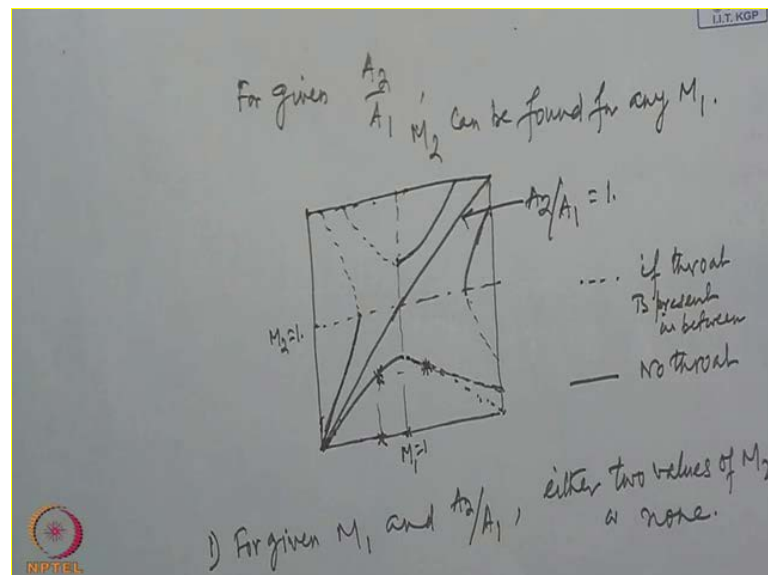 I.I.T. KGP
For given A2/A1, M2 can be found for any M1.
A2/A1 = 1.
if throat
is present
in between
M2=1.
No throat
M1=1
1) For given M1 and A2/A1, either two values of M2
or none.
NPTEL